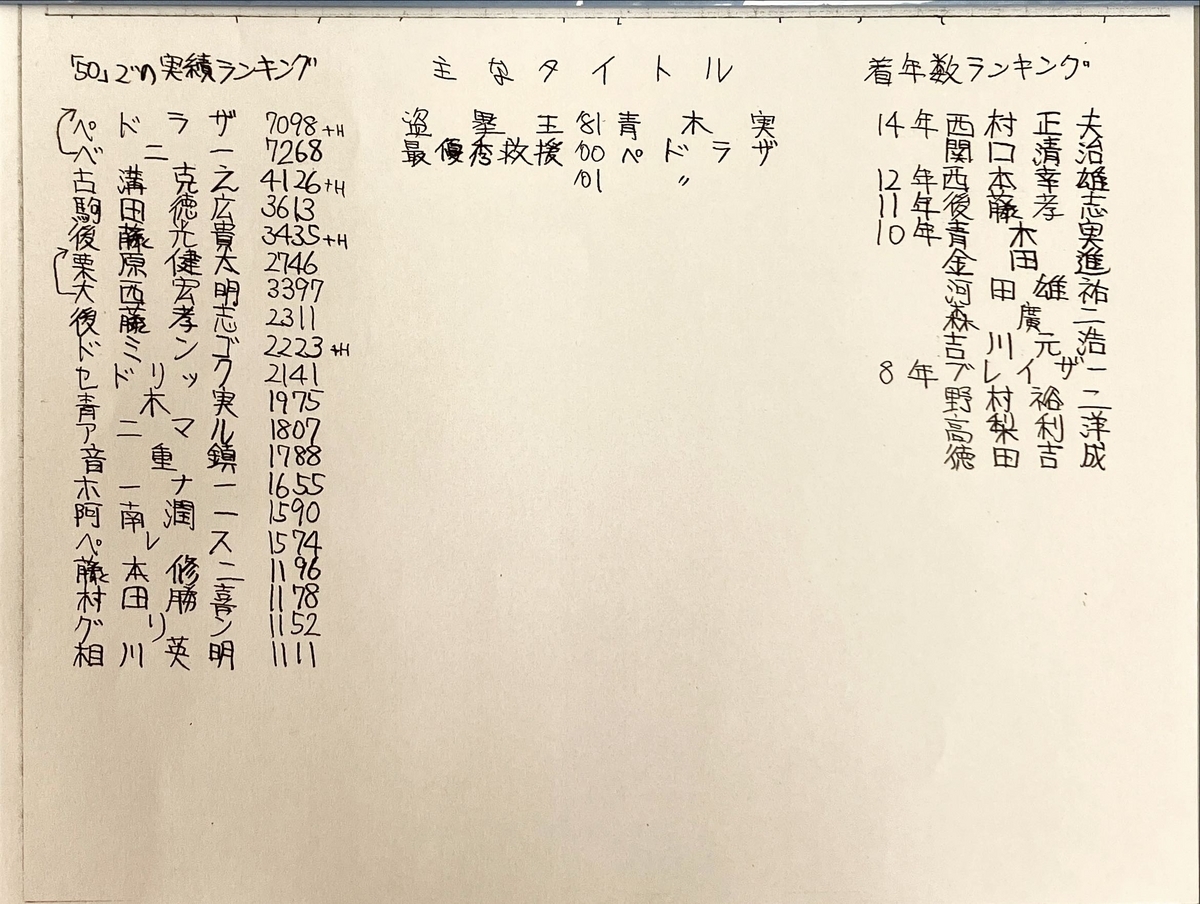 「50」での実績ランキング
ペドラザ 7098+H
ベニー 7268
古溝克之 4126+H
駒田徳広 3613
後藤光貴 3435+H
栗原健太 2746
大西宏明 3397
後藤孝志 2311
ドミンゴ 2223+H
セドリック 2141
青木実 1975
アニマル 1807
音重鎮 1788
ホーナー 1655
阿南潤一 1590
ペレス 1574
藤本修二 1196
村田勝喜 1178
グリン 1152
相川英明 1111
主なタイトル
盗塁王 '81 青木実
最優秀救援 '00 ペドラザ
'01 〃
着年数ランキング
14年 西村正夫
関口清治
12年 西本幸雄
11年 後藤孝志
10年 青木実
金田進
河田雄祐
森廣二
吉川元浩
8年 ブレイザー
野村裕二
高梨利洋
徳田吉成